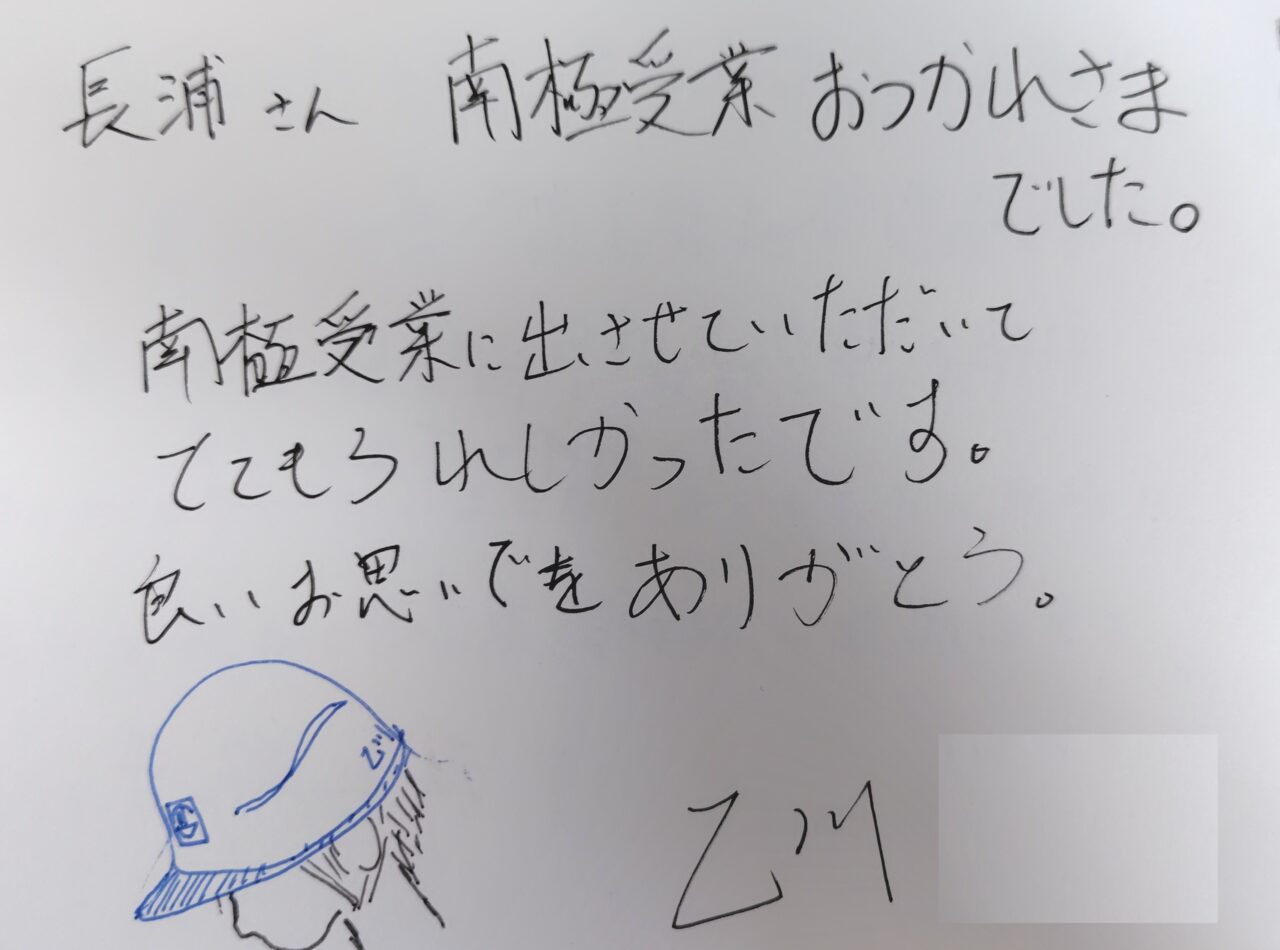 長浦さん 南極受業 おつかれさま
でした。
南極受業に出させていただいて
とてもうれしかったです。
良いお思いでをありがとう。
乙
乙川